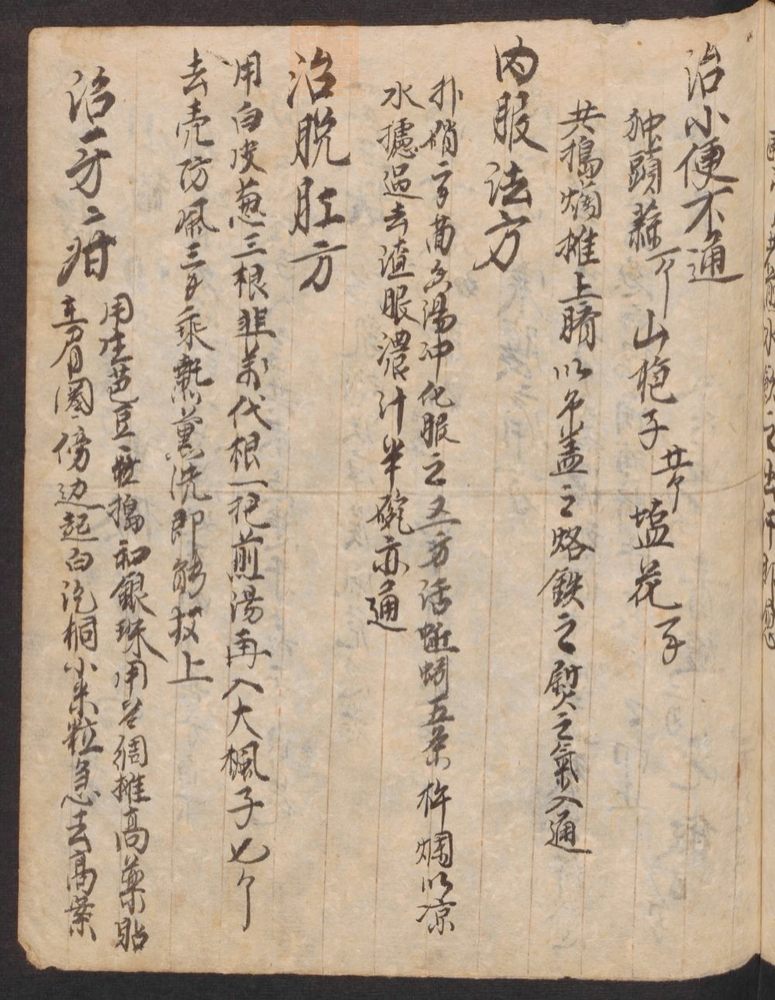 治小便不通
独頭蒜一个山栀子廿个塩花一子
共搗爛攤上臍以布盖之烙鉄之熨之氣入通
内服法方
朴硝一子茴香湯冲化服之又方活蚯蚓五条杵爛以凉
水摅過去渣服濃汁半碗亦通
治脱肛方
用白皮葱三根韭菜代根一把煎湯再入大楓子七个
去壳防風三子乘熱薰洗即能扳上
治一方二疳
用生芭豆一粒搗和銀珠用苎綢攤高藥貼
在眉圈傍边起白泡桐小米粒急去高藥